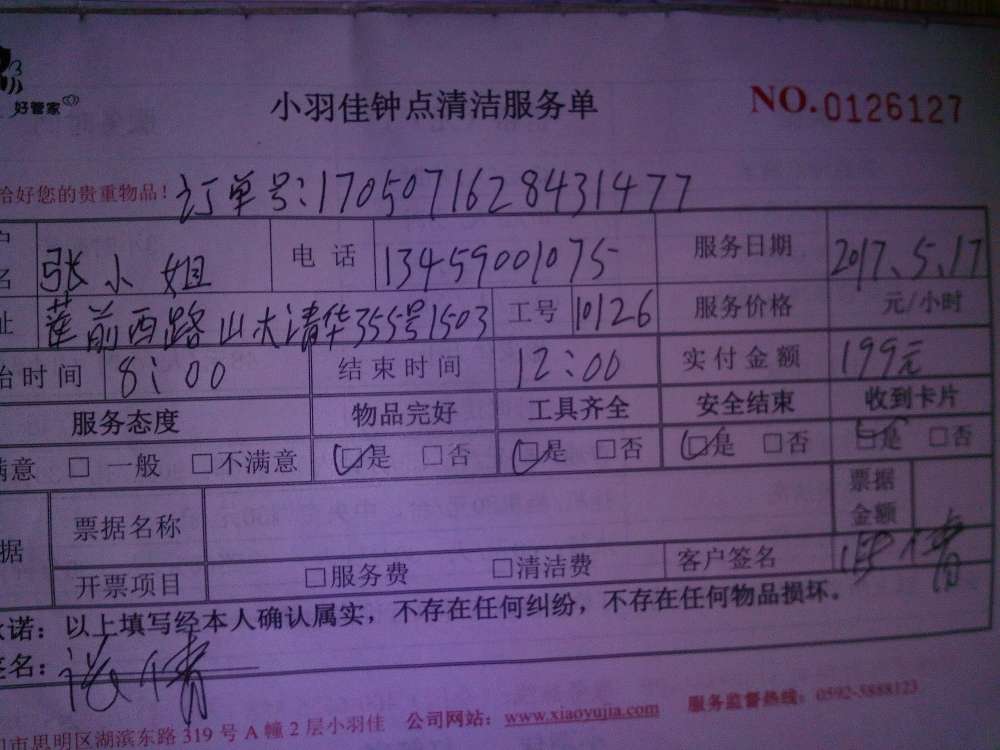 好管家
小羽佳钟点清洁服务单 NO.0126127
给好您的贵重物品！ 订单号:1705071628431477
户 名 张小姐 电话 13459001075 服务日期 2017、5、17
址 莲前西路山水清华355号1503 工号 10126 服务价格 元/小时
始时间 8:00 结束时间 12:00 实付金额 199元
服务态度 物品完好 工具齐全 安全结束 收到卡片
满意 □ 一般 □不满意 □是 □否 □是 □否 □是 □否 □是 □否
据 票据名称 票据金额
开票项目 □服务费 □清洁费 客户签名
承诺：以上填写经本人确认属实，不存在任何纠纷，不存在任何物品损坏。
签名：
门市思明区湖滨东路319号A幢2层小羽佳 公司网站：www.xiaoyujia.com 服务监督热线：0592-5888123